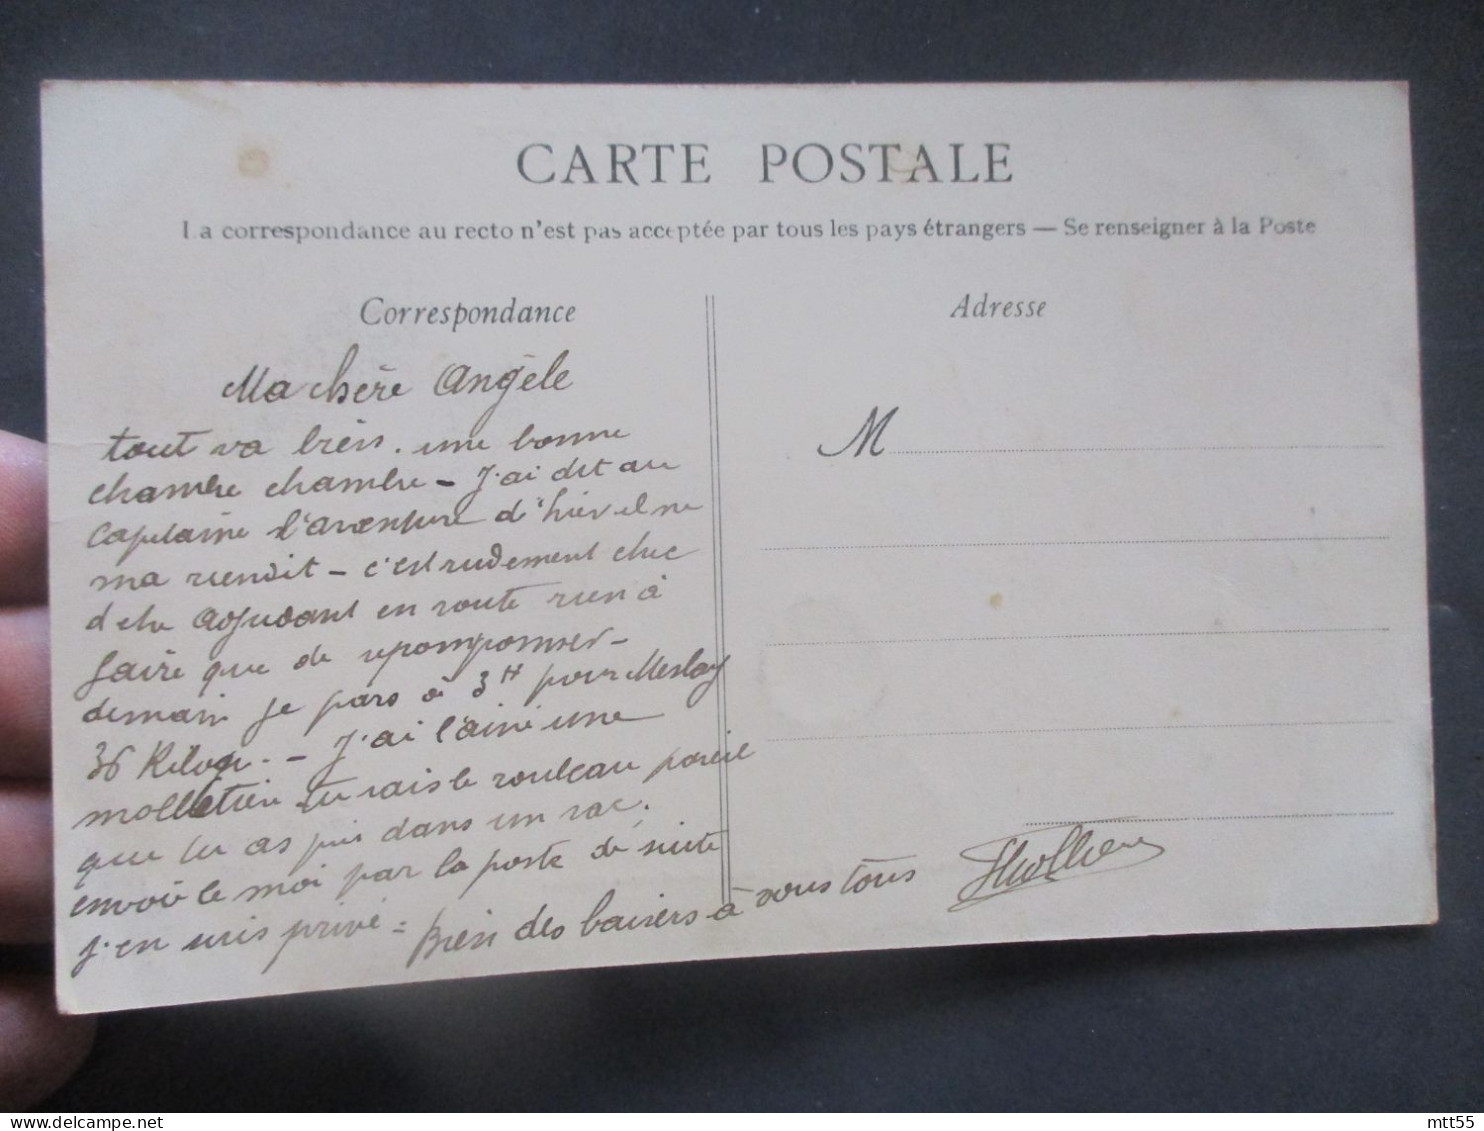 CARTE POSTALE
La correspondance au recto n'est pas acceptée par tous les pays étrangers — Se renseigner à la Poste
Correspondance
Adresse
Ma chère Angèle
tout va bien. une bonne
chambre chambre – J'ai dit au
Capitaine l'aventure d'hier il ne
ma rien dit – c'est rudement chic
d'etre adjudant en route rien à
faire que de
demain je pars à 3H pour Meslay
36 Kilom. – J'ai une
tu sais le rouleau pareil
que tu as pris dans un sac.
envoie le moi par la poste de suite
j'en suis privé = Bien des baisers à vous tous
M
mtt55